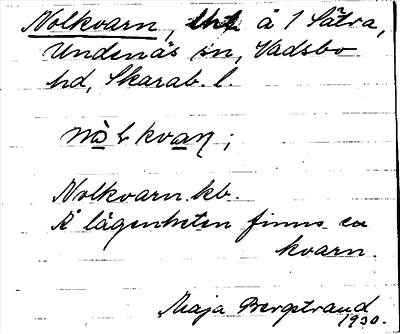 Nolkvarn, lht å 1 Sätra,
Undenäs sn, Vadsbo
hd, Skarab. l.
kvaṇ;
Nolkvarn kb.
Å lägenheten finns en
kvarn.
Maja Bergstrand
1930.